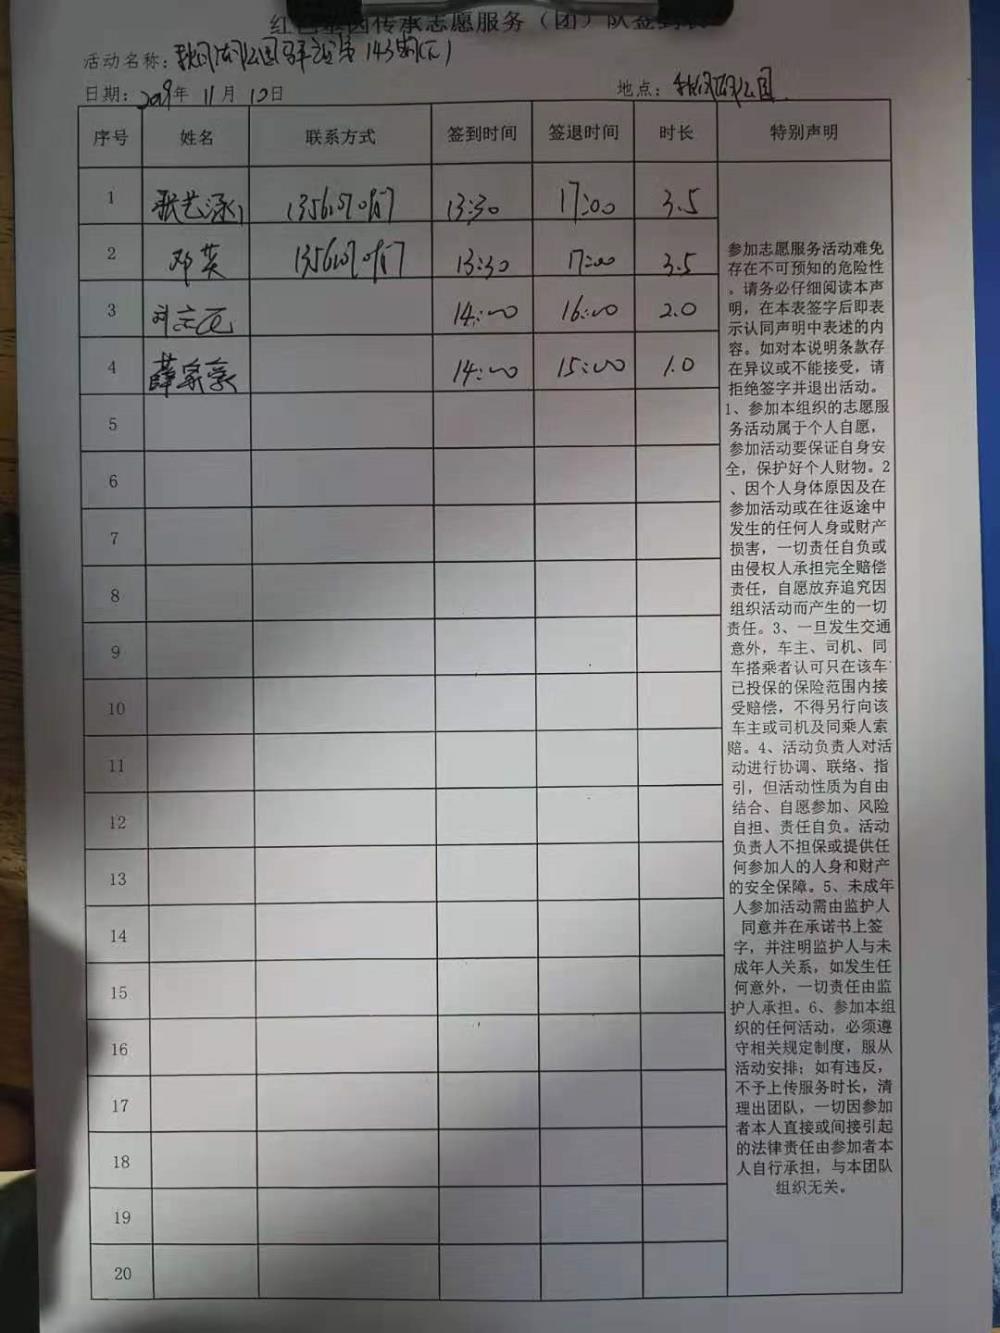 红色基因传承志愿服务（团）队签到表
活动名称： 143期(下)
日期：2019年 11月 10日 地点：
序号 姓名 联系方式 签到时间 签退时间 时长 特别声明
1 张艺涵 13:30 17:00 3.5
2 邓英 13:30 17:00 3.5
3 14:00 16:00 2.0
4 薛家豪 14:00 15:00 1.0
5
6
7
8
9
10
11
12
13
14
15
16
17
18
19
20
参加志愿服务活动难免
存在不可预知的危险性
。请务必仔细阅读本声
明，在本表签字后即表
示认同声明中表述的内
容。如对本说明条款存
在异议或不能接受，请
拒绝签字并退出活动。
1、参加本组织的志愿服
务活动属于个人自愿，
参加活动要保证自身安
全，保护好个人财物。2
、因个人身体原因及在
参加活动或在往返途中
发生的任何人身或财产
损害，一切责任自负或
由侵权人承担完全赔偿
责任，自愿放弃追究因
组织活动而产生的一切
责任。3、一旦发生交通
意外，车主、司机、同
车搭乘者认可只在该车
已投保的保险范围内接
受赔偿，不得另行向该
车主或司机及同乘人索
赔。4、活动负责人对活
动进行协调、联络、指
引，但活动性质为自由
结合、自愿参加、风险
自担、责任自负。活动
负责人不担保或提供任
何参加人的人身和财产
的安全保障。5、未成年
人参加活动需由监护人
同意并在承诺书上签
字，并注明监护人与未
成年人关系，如发生任
何意外，一切责任由监
护人承担。6、参加本组
织的任何活动，必须遵
守相关规定制度，服从
活动安排；如有违反，
不予上传服务时长，清
理出团队，一切因参加
者本人直接或间接引起
的法律责任由参加者本
人自行承担，与本团队
组织无关。